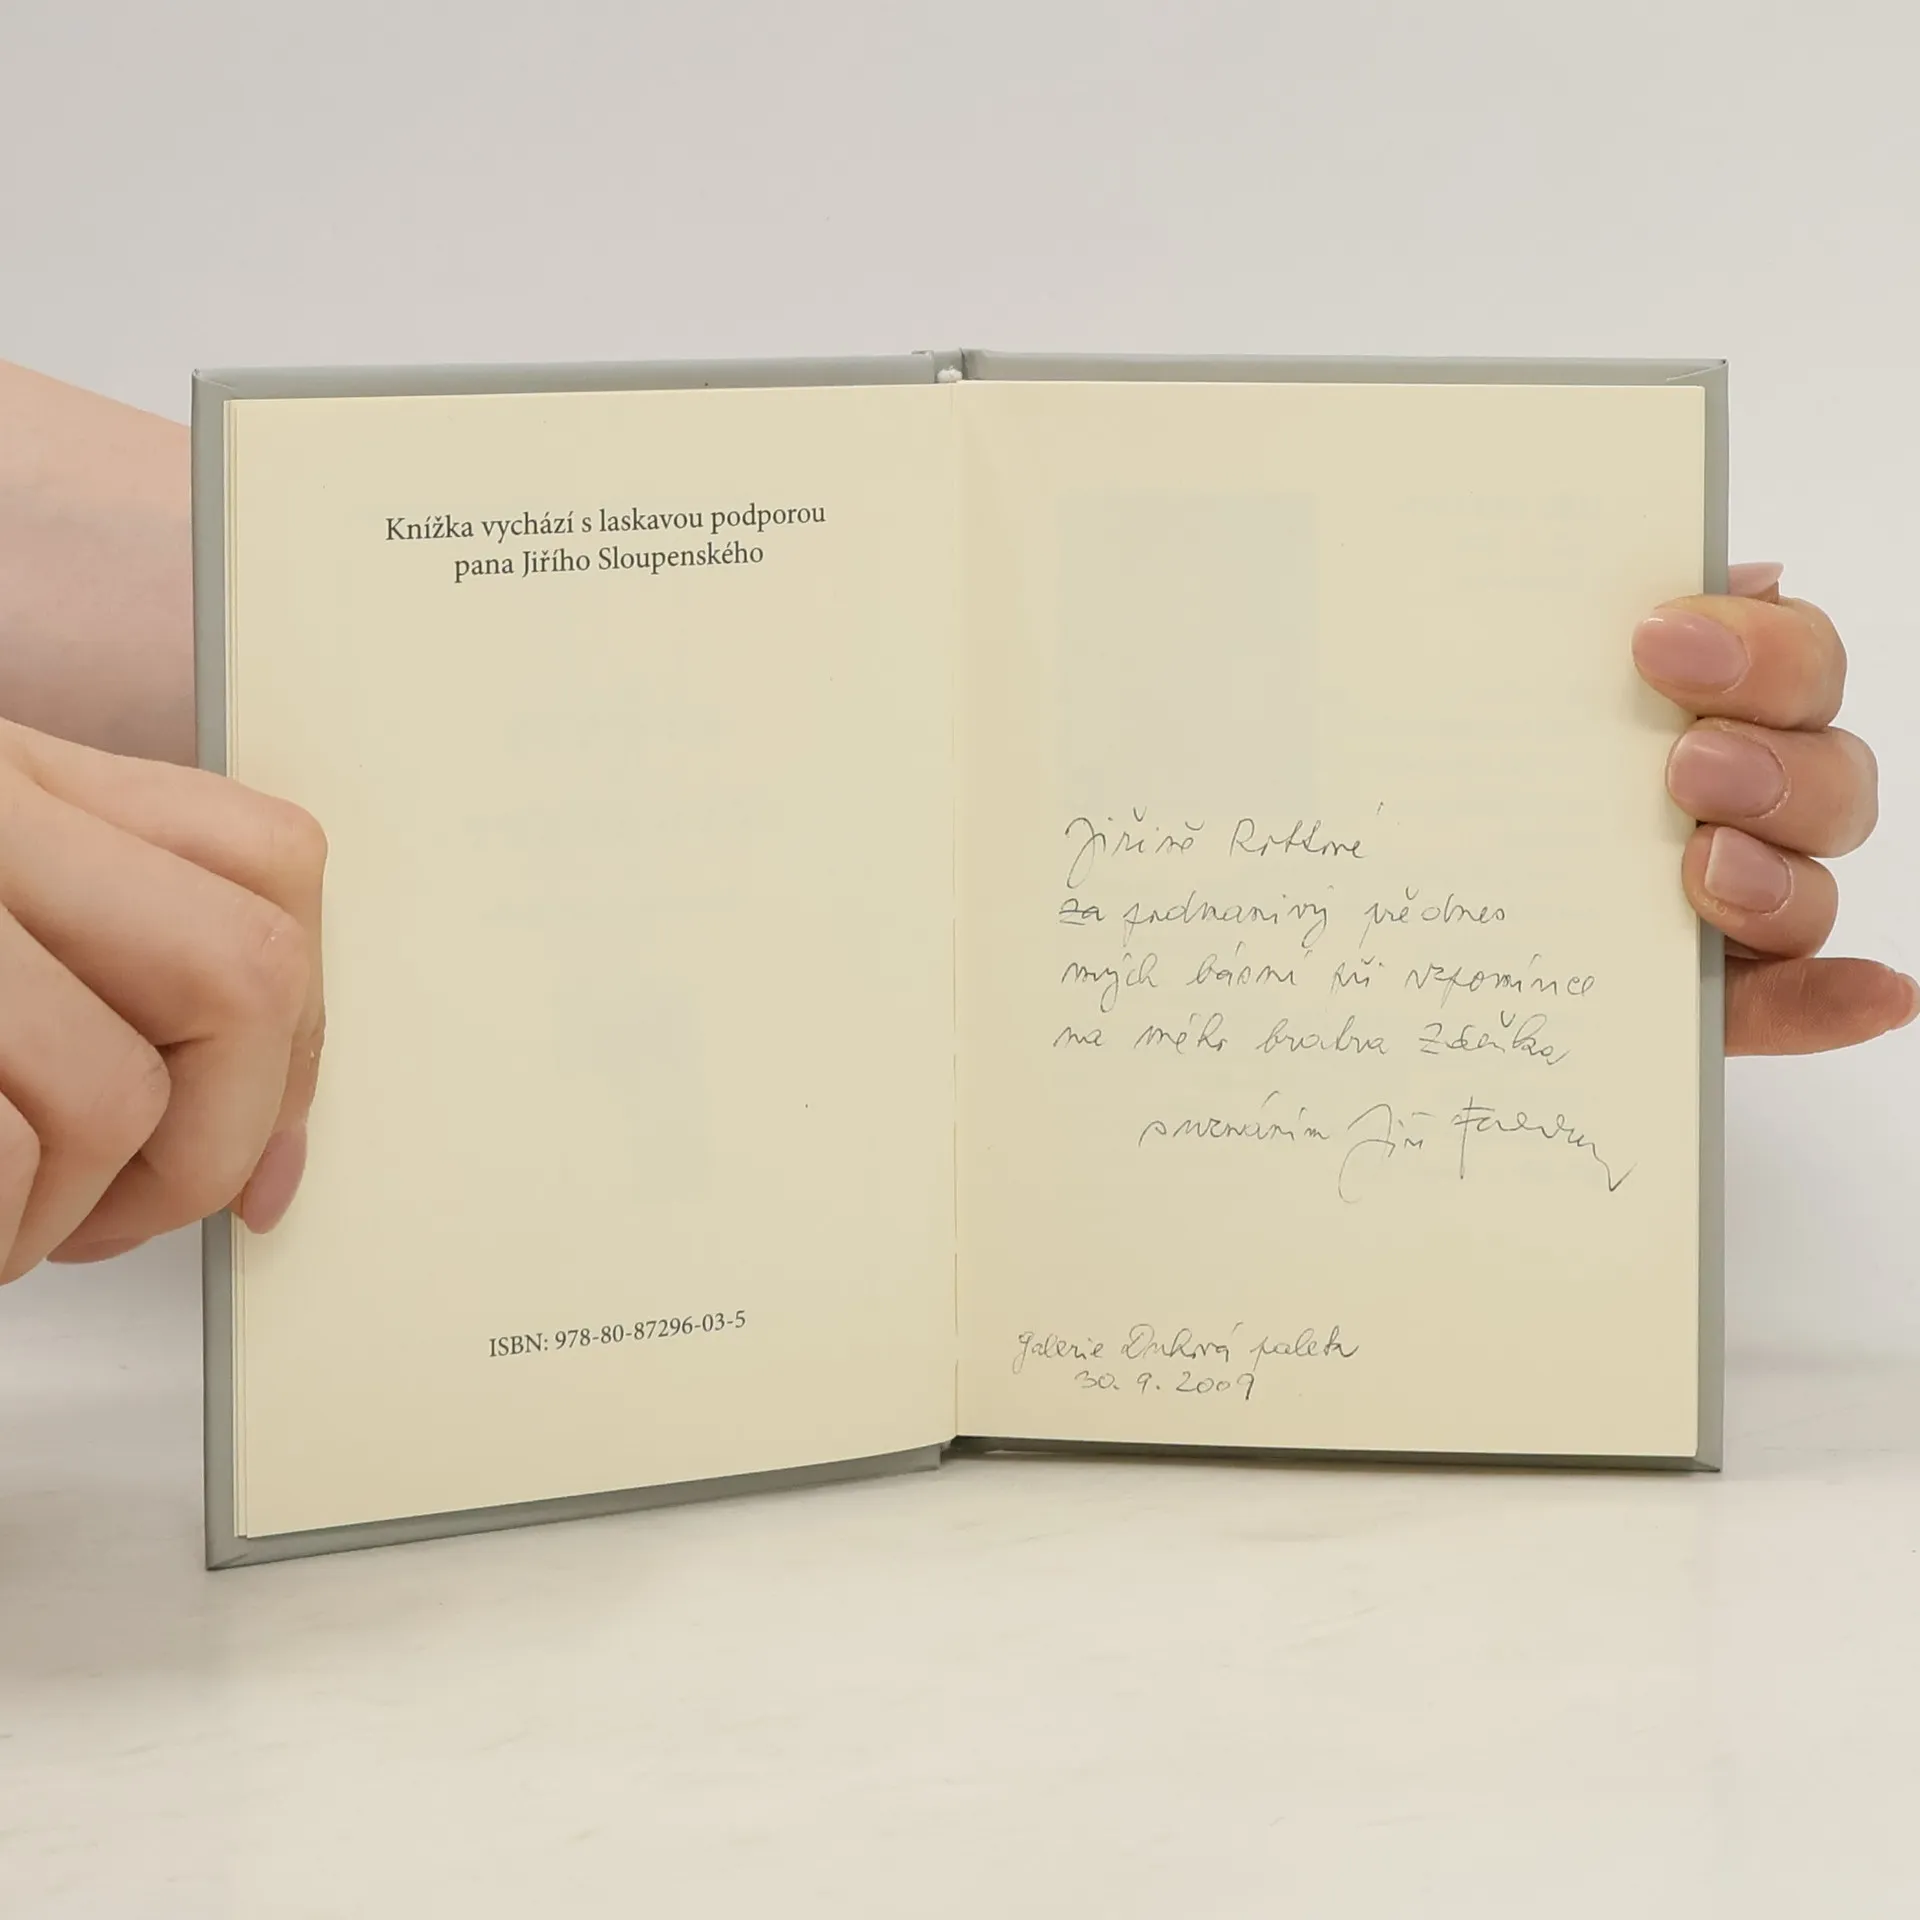 Knížka vychází s laskavou podporou
pana Jiřího Sloupenského
ISBN: 978-80-87296-03-5
Jiřině
za podmanivý přednes
mých básní při vzpomínce
na mého bratra
s uznáním Jiří
Galerie Duhová paleta
30. 9. 2009